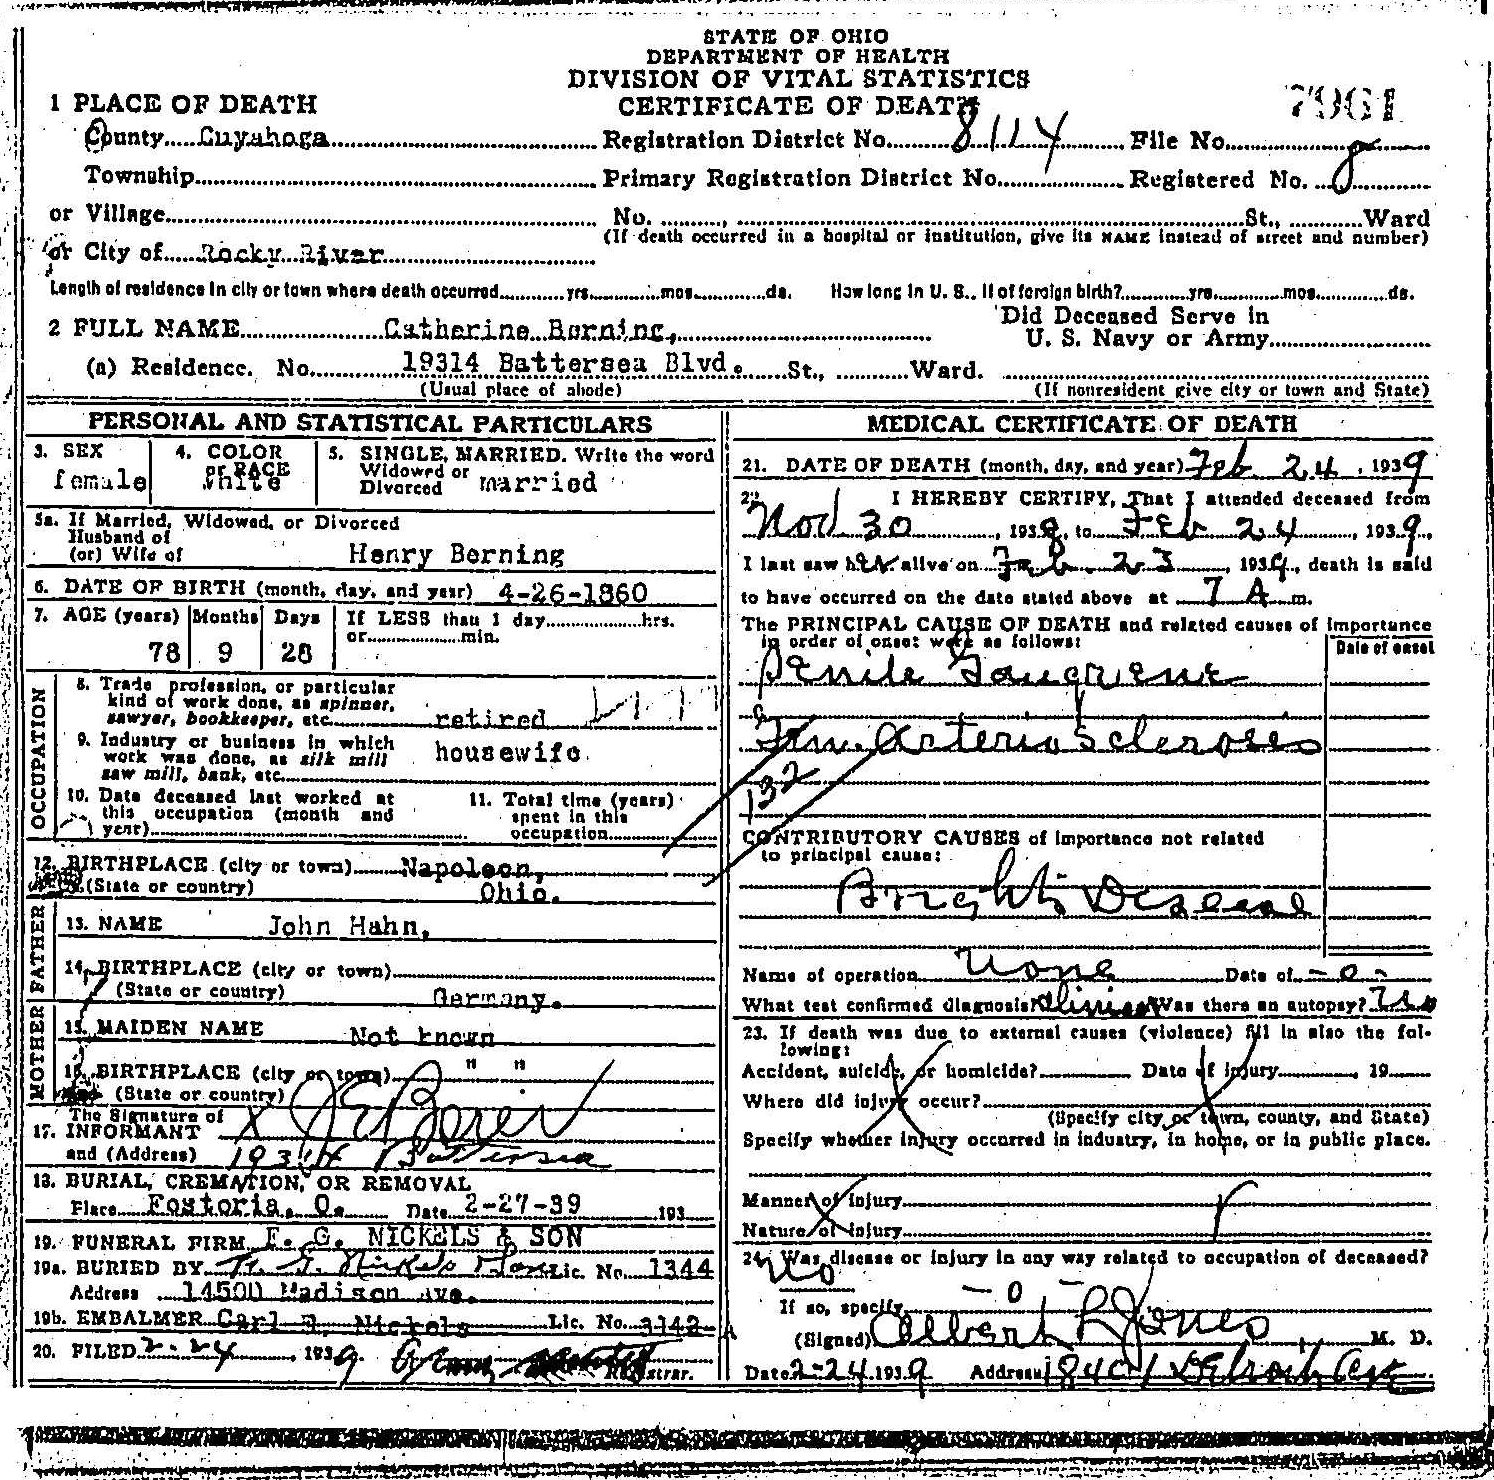 STATE OF OHIO
DEPARTMENT OF HEALTH
DIVISION OF VITAL STATISTICS
CERTIFICATE OF DEATH
7961
1 PLACE OF DEATH
County Cuyahoga Registration District No. 8114 File No.
Township Primary Registration District No. Registered No. 8
or Village No. , St., Ward
(If death occurred in a hospital or institution, give its NAME instead of street and number)
or City of Rocky River
Length of residence in city or town where death occurred yrs. mos. ds. How long in U. S., if of foreign birth? yrs. mos. ds.
2 FULL NAME Catherine Berning, Did Deceased Serve in U. S. Navy or Army
(a) Residence. No. 19314 Battersea Blvd. St., Ward.
(Usual place of abode) (If nonresident give city or town and State)
PERSONAL AND STATISTICAL PARTICULARS
3. SEX female
4. COLOR or RACE white
5. SINGLE, MARRIED. Write the word Widowed or Divorced married
5a. If Married, Widowed, or Divorced
Husband of
(or) Wife of Henry Berning
6. DATE OF BIRTH (month, day, and year) 4-26-1860
7. AGE (years) Months Days If LESS than 1 day hrs.
or min.
78 9 28
OCCUPATION
8. Trade profession, or particular
kind of work done, as spinner,
sawyer, bookkeeper, etc. retired
9. Industry or business in which
work was done, as silk mill
saw mill, bank, etc. housewife
10. Date deceased last worked at
this occupation (month and
year)
11. Total time (years)
spent in this
occupation
12. BIRTHPLACE (city or town) Napoleon,
(State or country) Ohio.
FATHER
13. NAME John Hahn,
14. BIRTHPLACE (city or town)
(State or country) Germany.
MOTHER
15. MAIDEN NAME Not known
16. BIRTHPLACE (city or town) " "
(State or country)
The Signature of
17. INFORMANT X J E
and (Address) 19314 Battersea
18. BURIAL, CREMATION, OR REMOVAL
Place Fostoria, O. Date 2-27-39 193
19. FUNERAL FIRM F. G. NICKELS & SON
19a. BURIED BY F. G. Nickels & Son Lic. No. 1344
Address 14500 Madison Ave.
19b. EMBALMER Carl Nickels Lic. No. 3142-A
20. FILED 2-24, 1939 Registrar.
MEDICAL CERTIFICATE OF DEATH
21. DATE OF DEATH (month, day, and year) Feb 24, 1939
22. I HEREBY CERTIFY, That I attended deceased from
Nov 30, 1938, to Feb 24, 1939,
I last saw her alive on Feb. 23, 1939, death is said
to have occurred on the date stated above at 7 A m.
The PRINCIPAL CAUSE OF DEATH and related causes of importance
in order of onset were as follows:
Date of onset
Senile Gangrene
Gen. Arterio Sclerosis
132
CONTRIBUTORY CAUSES of importance not related
to principal cause:
Brights Disease
Name of operation None Date of -0-
What test confirmed diagnosis? Clinical Was there an autopsy? no
23. If death was due to external causes (violence) fill in also the following:
Accident, suicide, or homicide? Date of injury , 19
Where did injury occur?
(Specify city or town, county, and State)
Specify whether injury occurred in industry, in home, or in public place.
Manner of injury
Nature of injury
24. Was disease or injury in any way related to occupation of deceased?
No
If so, specify — 0 —
(Signed) Albert R Jones, M. D.
Date 2-24 1939 Address 18401 Detroit Ave